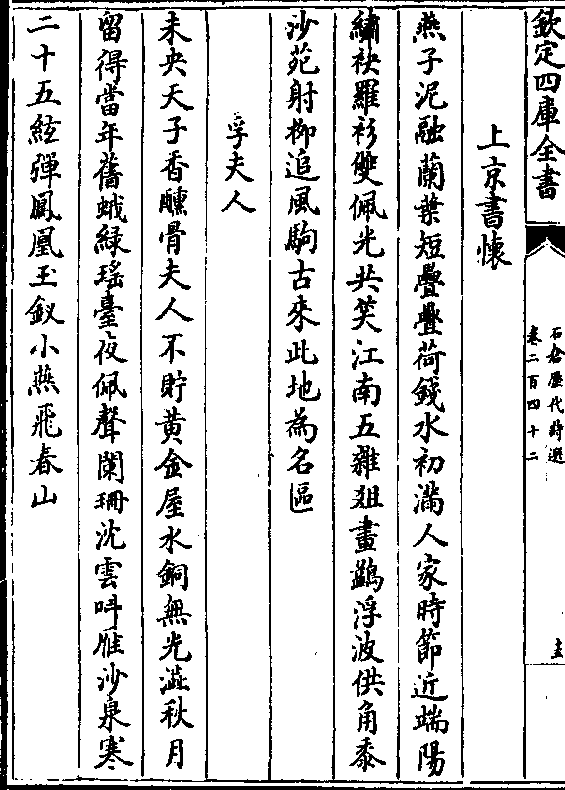 欽定四庫全書
石倉歷代詩選
卷二百四十二
圭
上京書懷
燕子泥融蘭葉短疊疊荷錢水初滿人家時節近端陽
繡袂羅衫雙佩光共笑江南五雜爼畫鷁浮波供角黍
沙苑射柳追風駒古來此地為名區
孚夫人
未央天子香醺骨夫人不貯黃金屋水銅無光澁秋月
留得當年舊蛾緑瑶臺夜佩聲闌珊沈雲叫雁沙泉寒
二十五絃彈鳳凰玉釵小燕飛春山